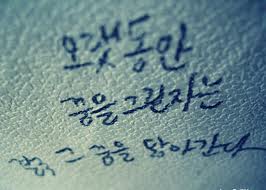 오랫동안
꿈을 그린자는
결국 그 꿈을 닮아간다